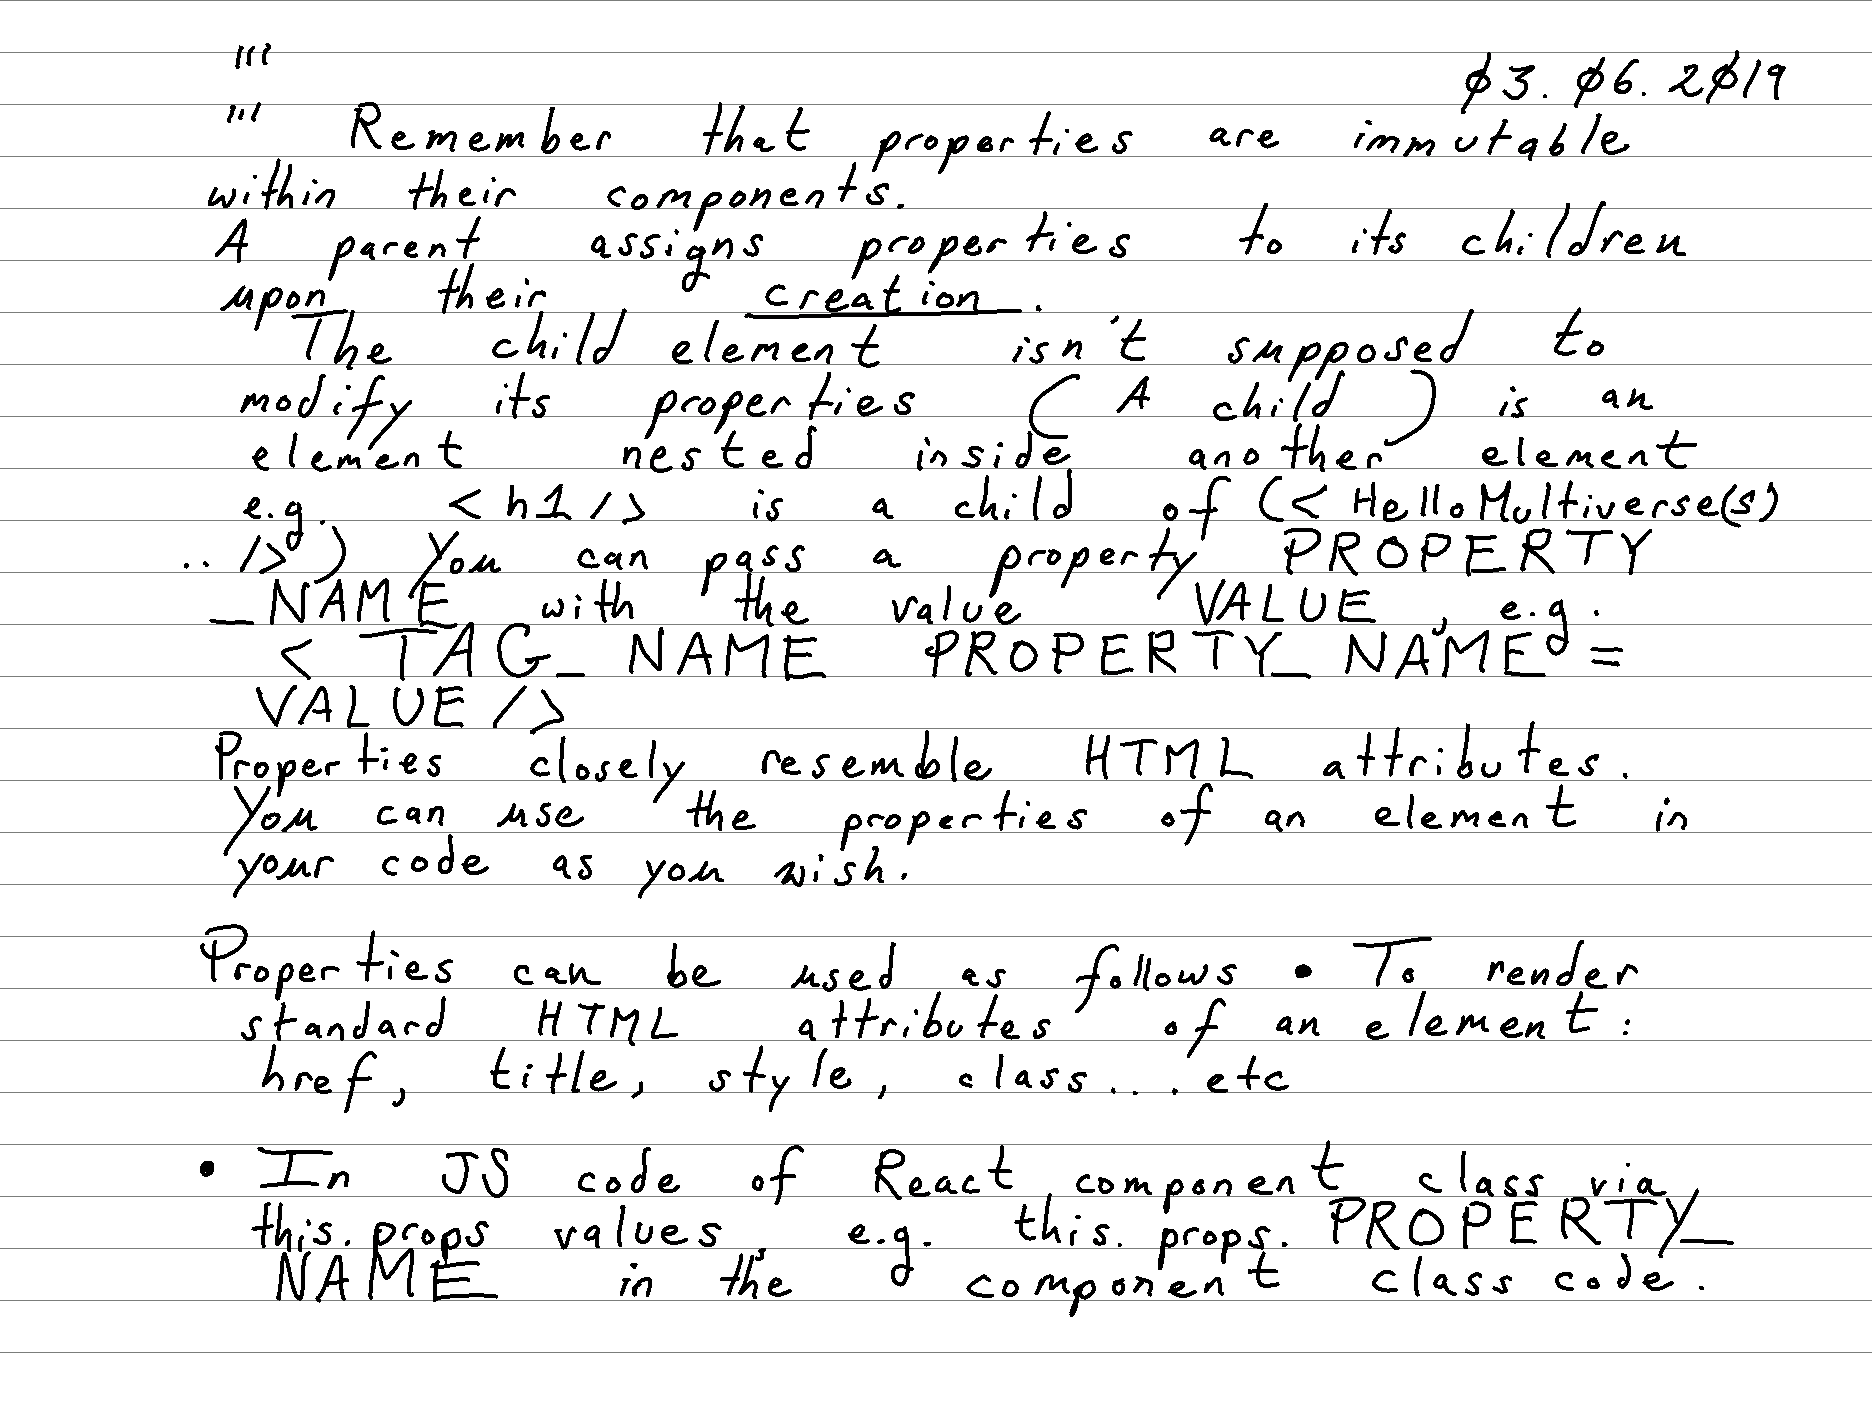 '''
03.06.2019
''' Remember that properties are immutable
within their components.
A parent assigns properties to its children
upon their creation.
The child element isn't supposed to
modify its properties (A child) is an
element nested inside another element
e.g. <h1/> is a child of (<HelloMultiverse(s)
../>) You can pass a property PROPERTY
_NAME with the value VALUE, e.g.
<TAG_NAME PROPERTY_NAME=
VALUE/>
Properties closely resemble HTML attributes.
You can use the properties of an element in
your code as you wish.
Properties can be used as follows • To render
standard HTML attributes of an element:
href, title, style, class....etc
• In JS code of React component class via
this.props values, e.g. this.props.PROPERTY_
NAME in the component class code.